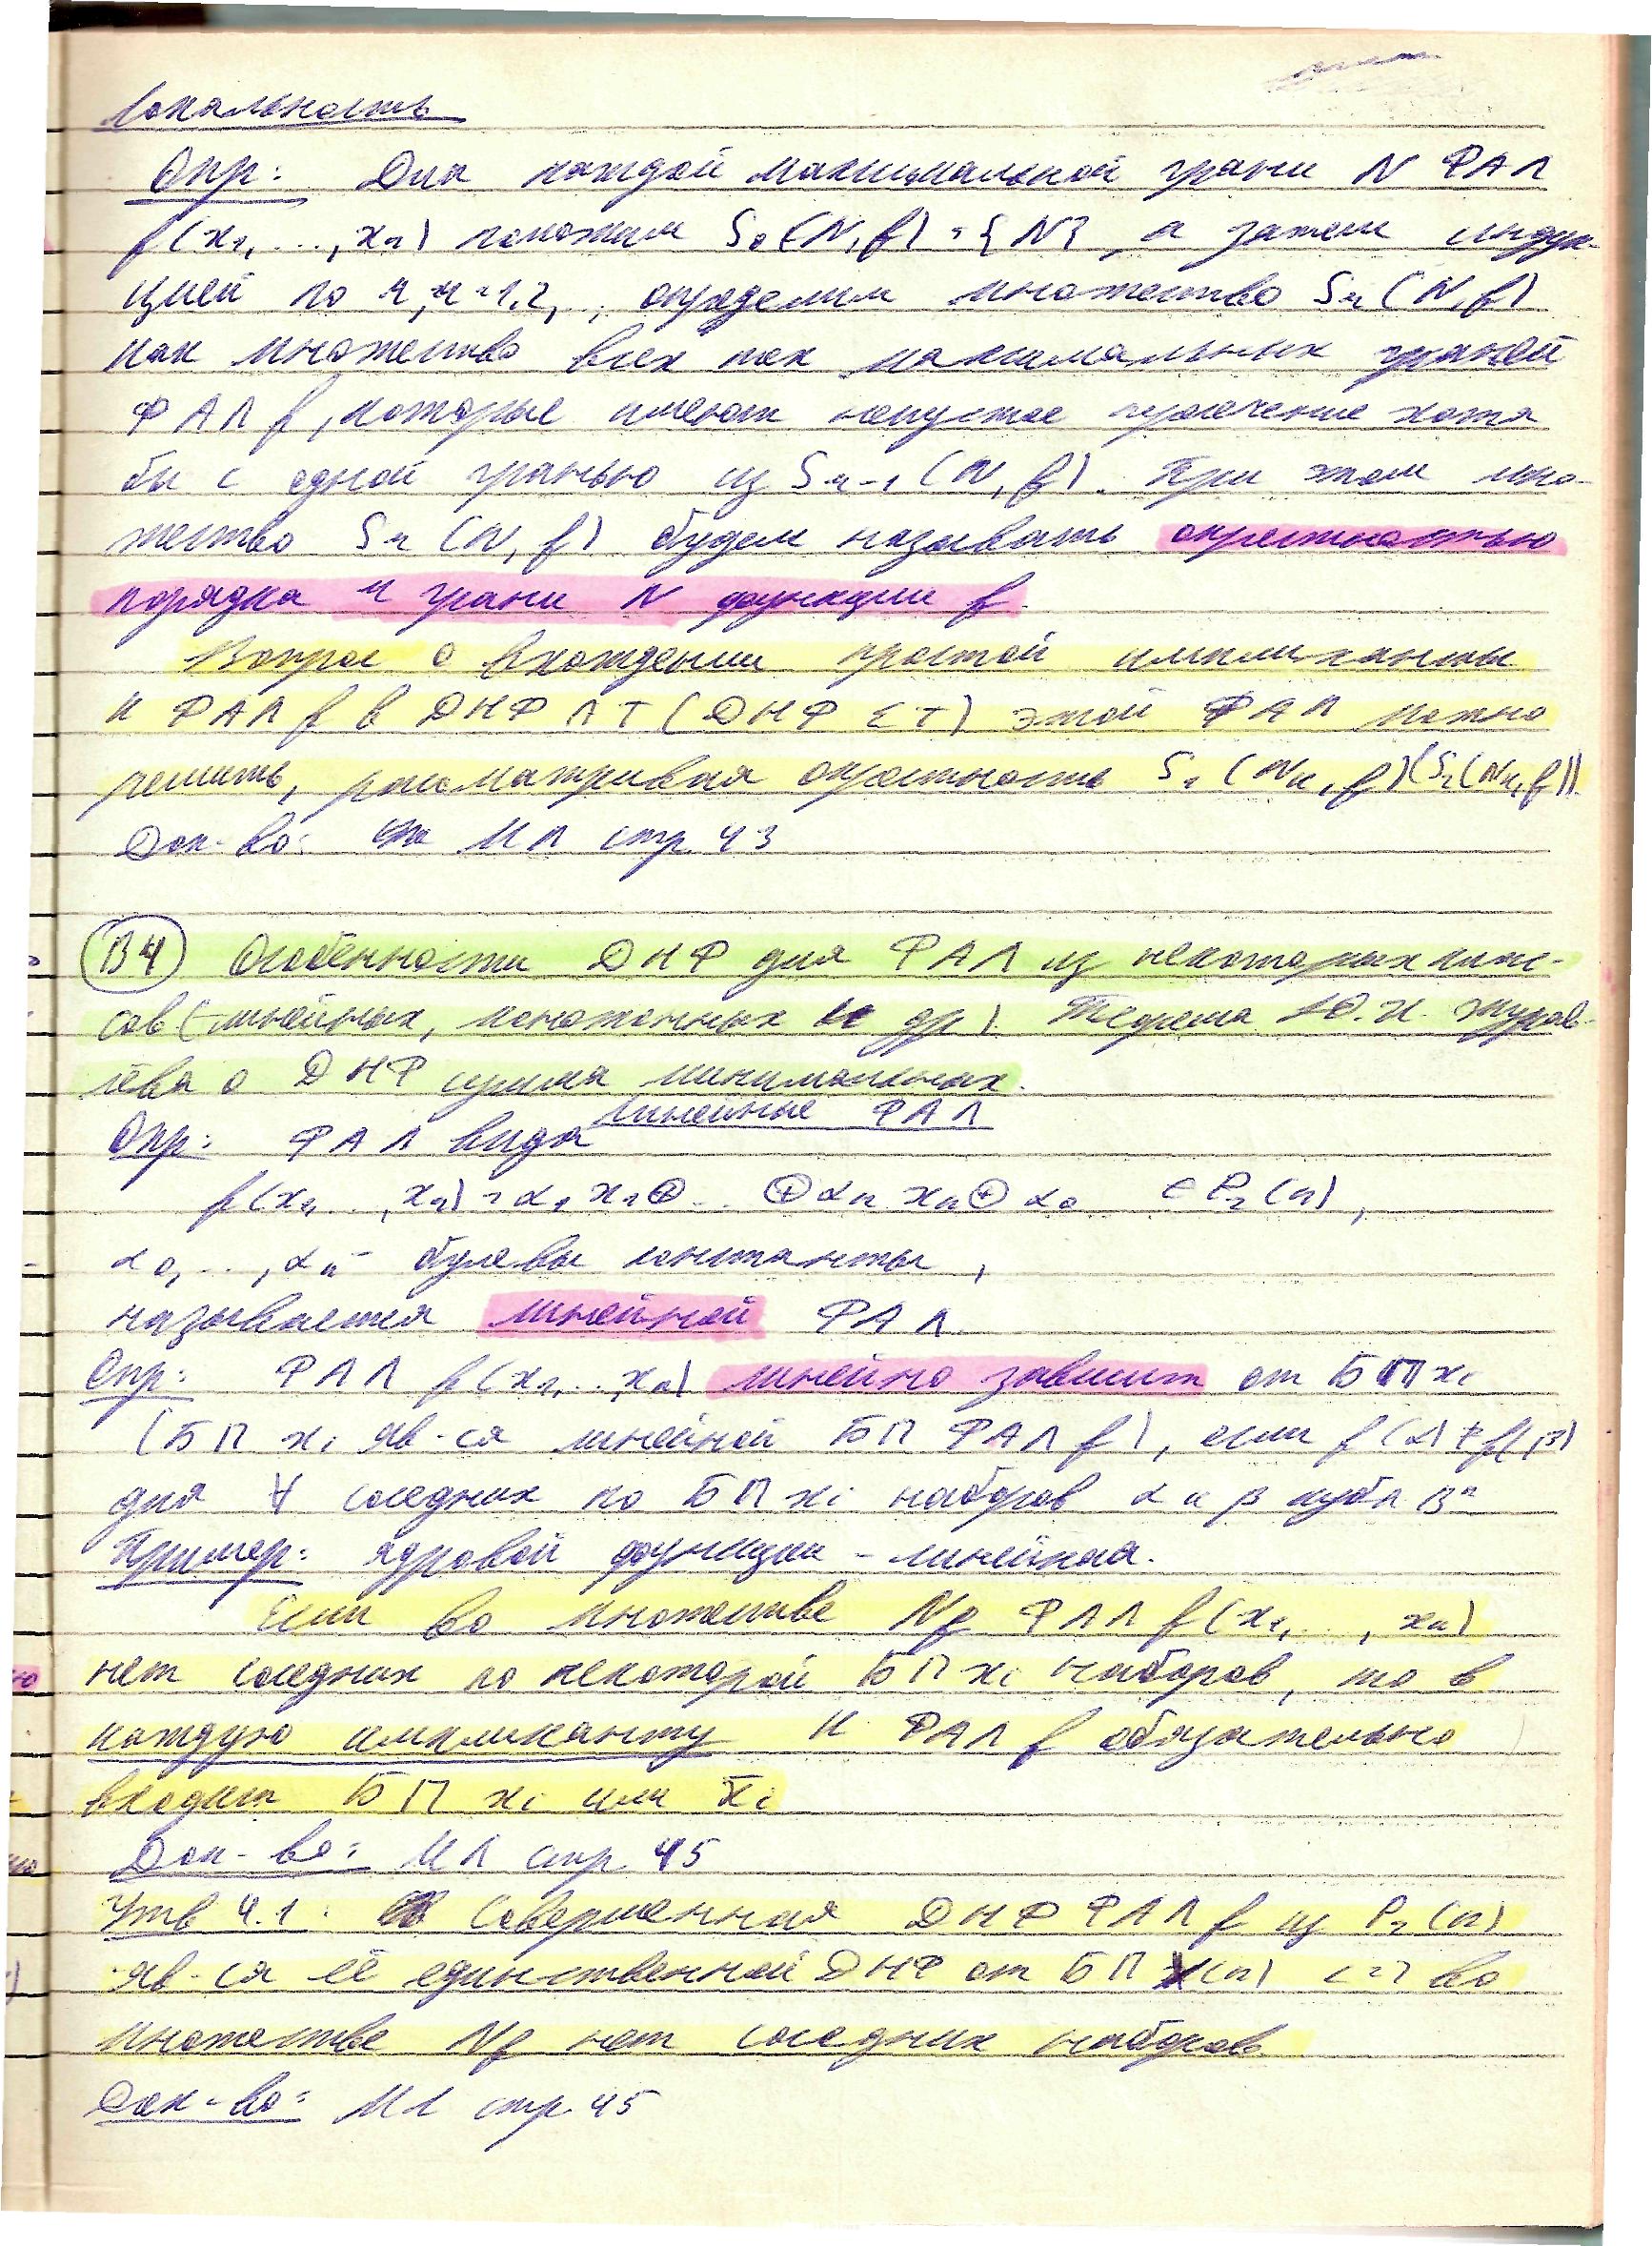 Локальность
Опр: Для каждой максимальной грани N ФАЛ
f(x₁, ..., xₙ) положим S₀(N, f) = {N}, а затем индук-
цией по r, r = 1, 2, .., определим множество Sᵣ(N, f)
как множество всех тех максимальных граней
ФАЛ f, которые имеют непустое пересечение хотя
бы с одной гранью из Sᵣ₋₁(N, f). При этом мно-
жество Sᵣ(N, f) будем называть окрестностью
порядка r грани N функции f.
Вопрос о вхождении простой импликанты
K ФАЛ f в ДНФ ΛT (ДНФ ΣT) этой ФАЛ можно
решить, рассматривая окрестность S₁(N_K, f) (S₂(N_K, f))
Док-во: МЛ стр. 43
В4 Особенности ДНФ для ФАЛ из некоторых клас-
сов (линейных, монотонных и др). Теорема Ю.И. Журав-
лёва о ДНФ сумма минимальных.
линейные ФАЛ
Опр: ФАЛ вида
f(x₁, .., xₙ) = α₁x₁⊕ .. ⊕αₙxₙ⊕α₀ ∈ P₂(n),
α₀, .., αₙ - булевы константы,
называется линейной ФАЛ
Опр: ФАЛ f(x₁, .., xₙ) линейно зависит от БП xᵢ
(БП xᵢ яв-ся линейной БП ФАЛ f), если f(α) ≠ f(β)
для ∀ соседних по БП xᵢ наборов α и β куба Bⁿ
Пример: ядровой функции - линейная.
Если во множестве N_f ФАЛ f(x₁, .., xₙ)
нет соседних по некоторой БП xᵢ наборов, то в
каждую импликанту K ФАЛ f обязательно
входит БП xᵢ или x̄ᵢ
Док-во: МЛ стр. 45
Утв 4.1: Совершенная ДНФ ФАЛ f из P₂(n)
яв-ся её единственной ДНФ от БП X(n) <=> во
множестве N_f нет соседних наборов
Док-во: МЛ стр. 45